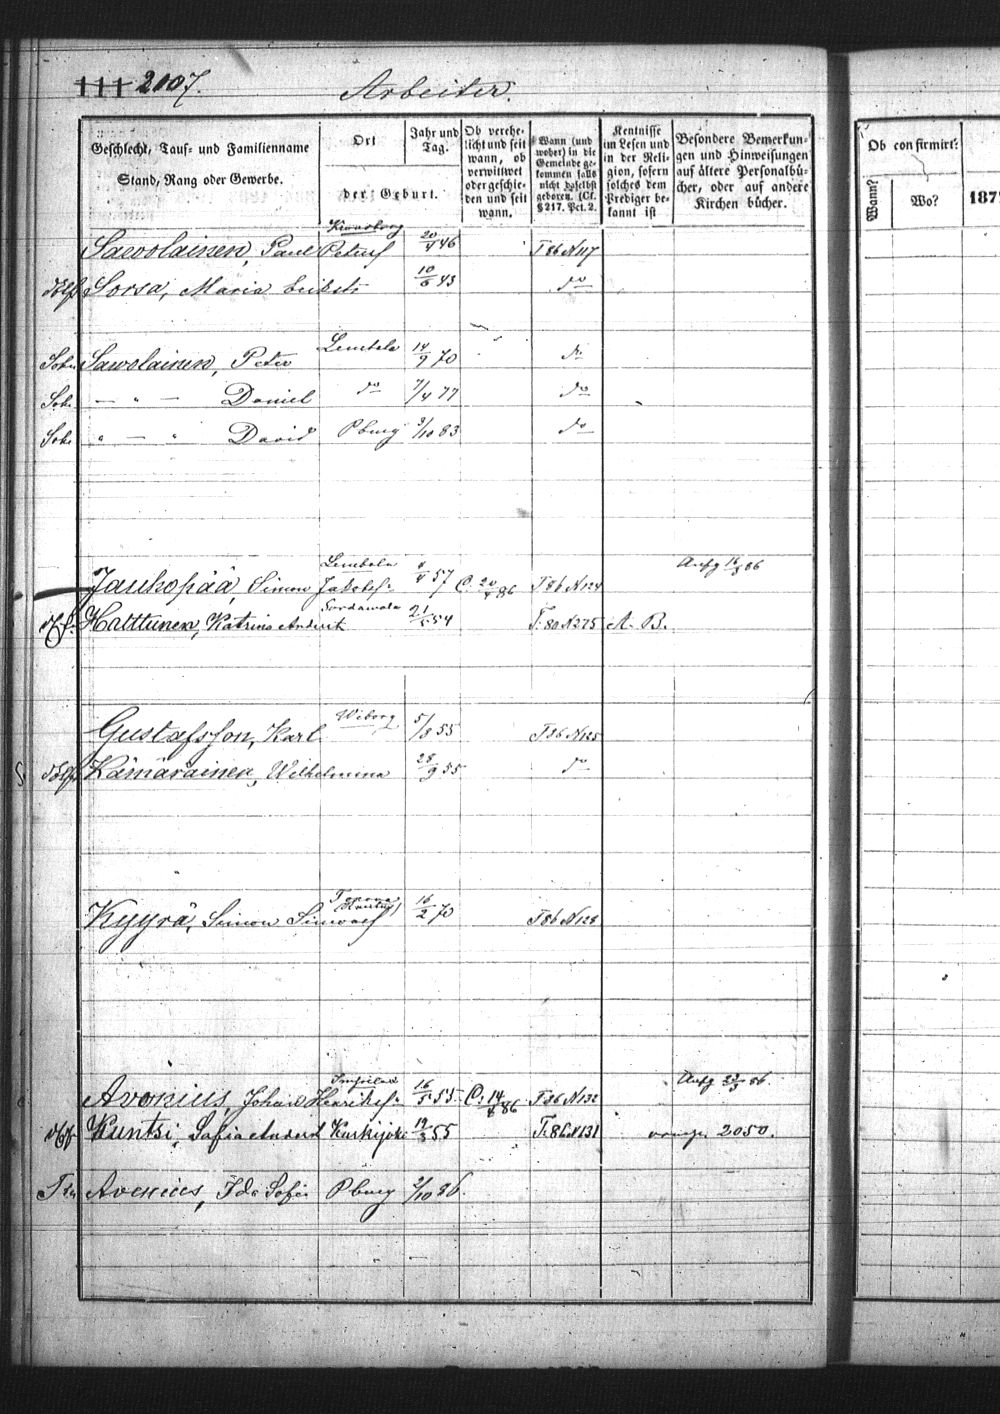 111 2107. Arbeiter.
Geschlecht, Tauf- und Familienname
Stand, Rang oder Gewerbe.
Ort
der Geburt.
Jahr und Tag.
Ob verehe-
licht und seit
wann, ob
verwittwet
oder geschie-
den und seit
wann.
Wann (und
woher) in die
Gemeinde ge-
kommen falls
nicht daselbst
geboren. (Cf.
§ 217. Pct. 2.
Kentnisse
im Lesen und
in der Reli-
gion, sofern
solches dem
Prediger be-
kannt ist
Besondere Bemerkun-
gen und Hinweisungen
auf ältere Personalbü-
cher, oder auf andere
Kirchen bücher.
Ob confirmirt:
Wann?
Wo?
187
Sawolainen, Paul Petrus 20/4 46 T 86 N 117
Sorsa, Maria 10/6 43 do
Sohn Sawolainen, Peter Lembala 14/9 70 do
Sohn — " — Daniel do 7/4 77 do
Sohn " — " David Pburg 3/10 83 do
Jauhopää, Simon Lembala 4/4 57 C. 20/4 86 T 86 N 124 Aufg 16/3 86
Halttunen, Katrina Sordawala 21/5 54 T. 80 N 275 A. B.
Gustafsson, Karl Wiborg 5/8 55 T 86 N 125
Kämäräinen, Wilhelmina 28/9 55 do
Kyyrä, Simon 16/2 70 T 86 N 128
Avonius, Johan Henriks. Impilax 16/5 55 C. 14/8 86 T 86 N 132 Aufg 23/3 86.
Kuntsi, Sofia Kurkijoki 19/3 55 T. 86 N 131 2050.
Avonius, Ida Sofia Pburg 2/10 86.